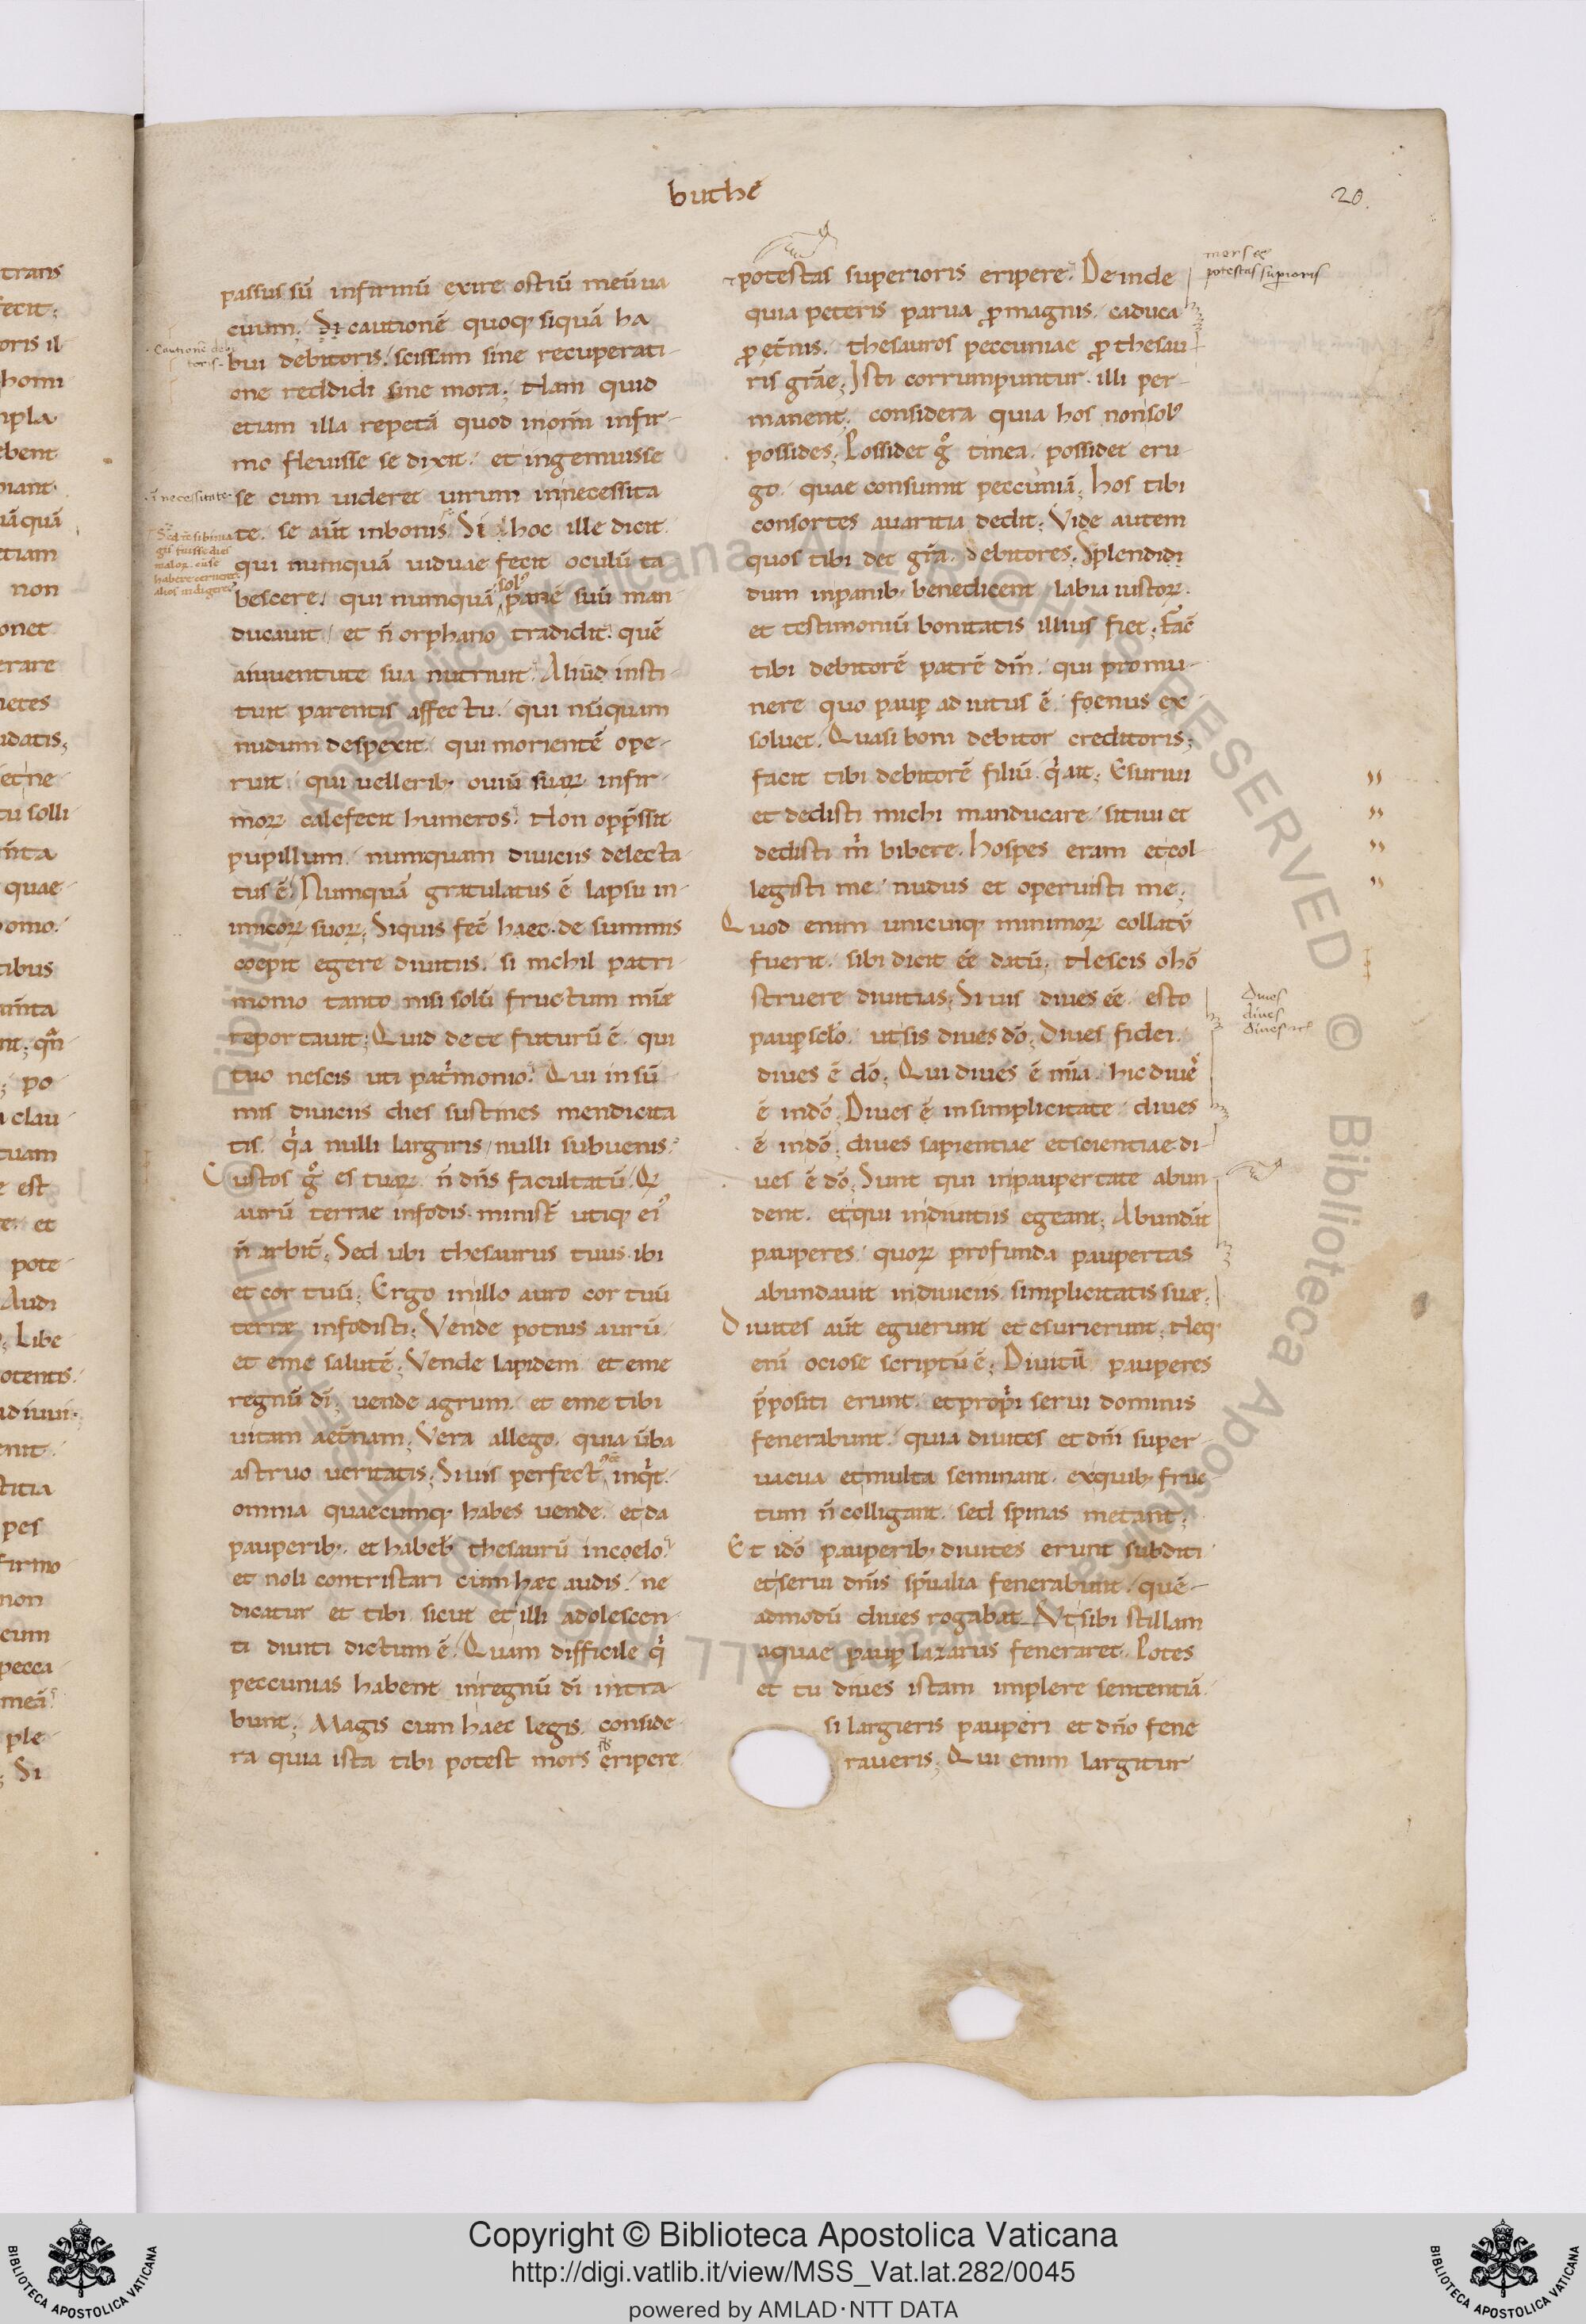 buthe᷑
20.
passus sū infirmū exire ostiū meū ua
cuum. Si cautionē quoq; siquā ha
bui debitoris, scissam sine recuperati
one reddidi sine mora; Nam quid
etiam illa repetā quod inom̄i infir-
mo fleuisse se dixit. et ingemuisse
se cum uideret uirum innecessita
te. se aūt inbonis. Si hoc ille dicit
qui numquā uiduae fecit oculū ta
bescere. qui numquā solus panē suū man-
ducauit. et n̄ orphano tradidit. quē
aiuuentute sua nutriuit. Aliud insti-
tuit parentis affectu. qui nūquam
nudum despexit. qui morientē ope-
ruit. qui uellerib; ouiū suarꝝ infir-
morꝝ calefecit humeros. Non opp̄ssit
pupillum. numquam diuiciis delecta-
tus ē. Numquā gratulatus ē lapsu in-
imicorꝝ suorꝝ; Siquis fec̄ haec. de summis
coepit egere diuitiis. si nichil patri-
monio tanto nisi solū fructum miæ
reportauit; Quid de te futurū ē. qui
tuo nescis uti patmonio. Qui in sū
mis diuiciis dies sustines mendicita
tis. qa nulli largiris, nulli subuenis.
Custos g̊ es tuarꝝ n̄ dn̄s facultatū. Qꝝ
aurū terrae infodis. minist̄ utiq; ei'
n̄ arbit̄; Sed ubi thesaurus tuus. ibi
et cor tuū; Ergo inillo auro cor tuū
terræ infodisti; Vende potius aurū.
et eme salutē; Vende lapidem et eme
regnū di; uende agrum. et eme tibi
uitam aet̄nam; Vera allego. quia ūba
astruo ueritatis; Siuis perfect' eē inq̇t.
omnia quaecumq; habes uende. et da
pauperib; et habeb̄ thesaurū incoelo.
et noli contristari cum hæc audis. ne
dicatur et tibi sicut et illi adolescen-
ti diuiti dictum ē. Quam difficile q̇
peccunias habent inregnū di intra-
bunt; Magis cum haec legis. conside-
ra quia ista tibi potest mors eripere
potestas superioris eripere. Deinde
quia peteris parua ꝓmagnis. caduca
ꝓ et̄nis. thesauros peccuniae ꝓ thesau
ris grāe; Isti corrumpuntur. illi per-
manent; considera quia hos nonsol'
possides; Possidet g̊ tinea. possidet eru
go. quae consumit peccuniā; hos tibi
consortes auaritia dedit; Vide autem
quos tibi det grā. debitores. Splendidi
dum inpanib; benedicent labia iustorꝝ.
et testimoniū bonitatis illius fiet; fac̄
tibi debitorē patrē dm̄. qui pro mu-
nere quo pauꝑ adiutus ē. foenus ex
soluet. Quasi boni debitor creditoris;
facit tibi debitorē filiū. q̇ ait; Esuriui
et dedisti michi manducare. sitiui et
dedisti m̄ bibere. hospes eram et col
legisti me. nudus et operuisti me;
Quod enim unicuiq; minimorꝝ collatū
fuerit. sibi dicit eē datū; Nescis ohō
struere diuitias; Siuis diues eē. esto
pauꝑ sclo. utsis diues dō; Diues fidei.
diues ē dō; Qui diues ē mīa. hic diues
ē indō; Diues ē insimplicitate. diues
ē indō; diues sapientiae et scientiae. di-
ues ē dō; Sunt qui inpaupertate abun
dent. et qui indiuitiis egeant; Abundāt
pauperes. quorꝝ profunda paupertas
abundauit indiuiciis simplicitatis suæ;
Diuites aūt eguerunt et esurierunt; Neq;
eni ociose scriptū ē; Diuitū pauperes
p̄positi erunt. et proṗi serui dominis
fenerabunt. quia diuites et dn̄i super-
uacua et multa seminant. exquib; fruc
tum n̄ colligant. sed spinas metant;
Et idō pauperib; diuites erunt subditi
et serui dn̄is spūalia fenerabunt. quē-
admodū diues rogabat. Ut sibi stillam
aquae pauꝑ lazarus feneraret. Potes
et tu diues istam implere sententiā.
si largieris pauperi et dn̄o fene
raueris; Qui enim largitur
Cautionē debi
toris
ī necessitate
mors et
potestas supioris
diues
diues
trans
fecit;
oris il
etiam
non
onet
quae
clau
est
pote
Audi
Libe
non
cum
pecca
ple
Si
© Biblioteca Apostolica Vaticana ALL RIGHTS RESERVED
Copyright © Biblioteca Apostolica Vaticana
http://digi.vatlib.it/view/MSS_Vat.lat.282/0045
powered by AMLAD·NTT DATA
BIBLIOTECA APOSTOLICA VATICANA
BIBLIOTECA APOSTOLICA VATICANA